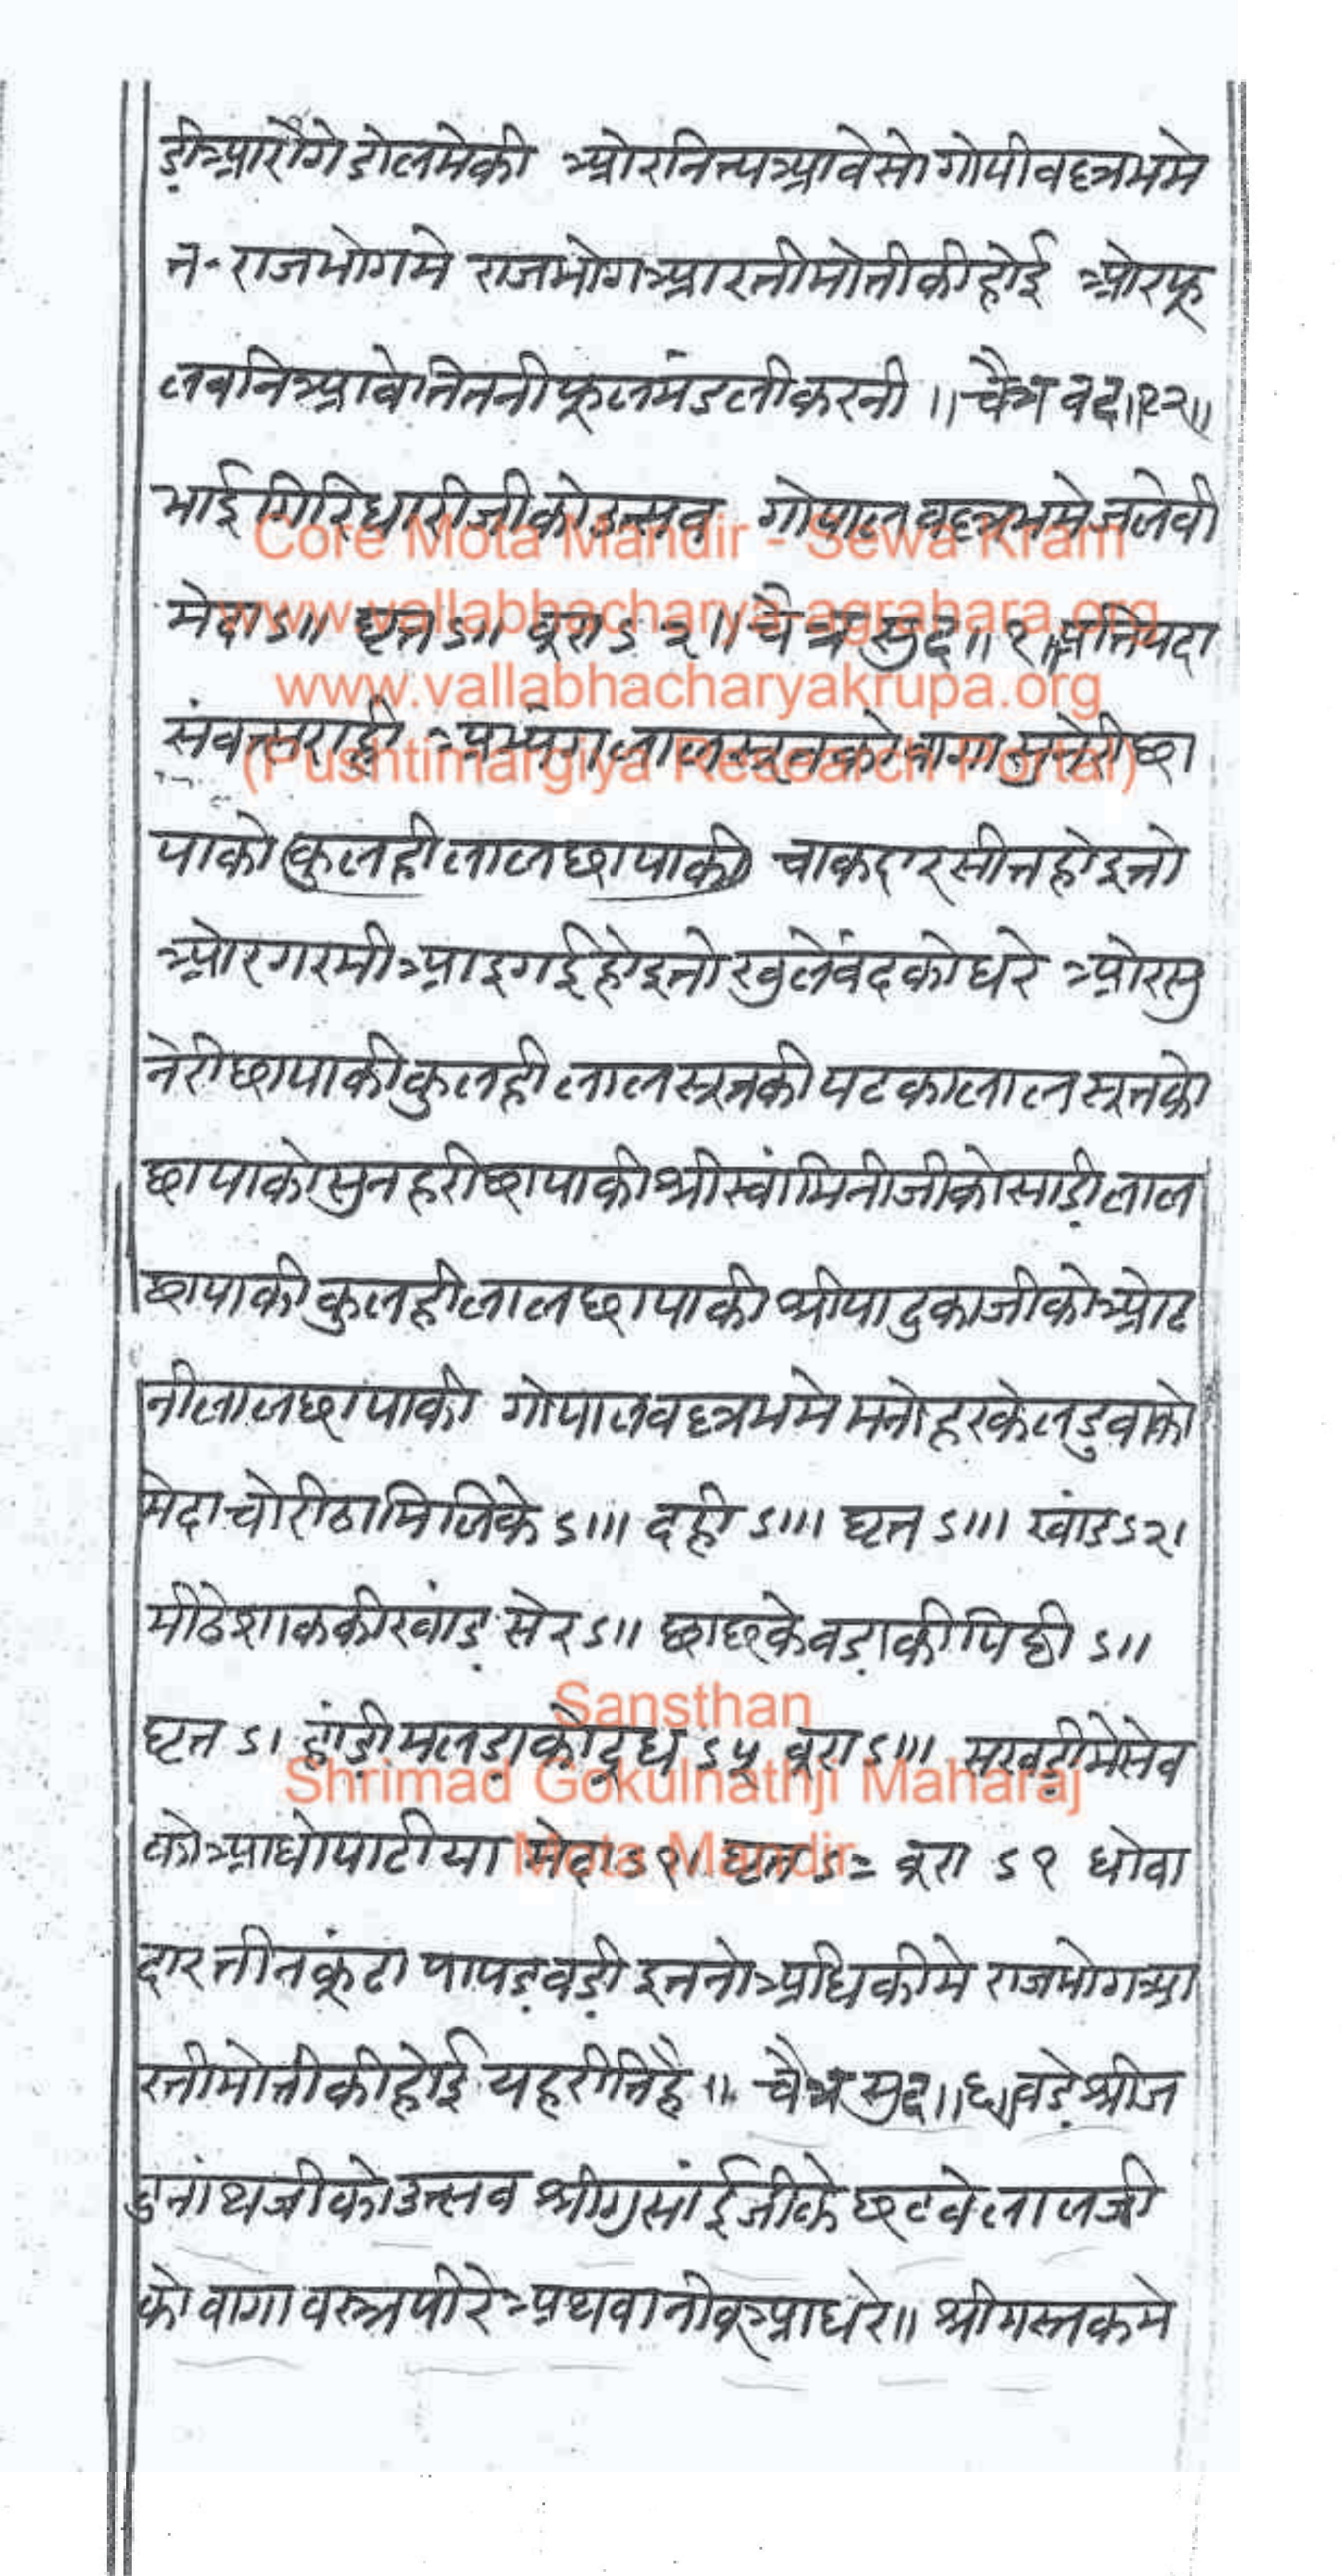 डी आरोगे डोलमेकी ओर नित्य आवेसो गोपीवल्लभमे
न॰ राजभोगमे राजभोग आरतीमोतीकीहोई ओरफू
लबनिआवेतितनीफूलमंडलीकरनी ॥ चैत्र वद॥१२॥
भाईगिरिधारीजीकोउत्सव गोपालवल्लभमेजलेबी
मेदाऽ॥ घृतऽ॥ बूराऽ२॥ चैत्र सुद॥१॥प्रतिपदा
संवत्सराडी अभ्यंग लालसूतकोवागासुनेरीछा
पाको कुलहीलालछापाकी चाकदारसीतहोइतो
ओरगरमीआइगईहोइतोखुलेबंदकोधरे ओरसु
नेरीछापाकीकुलहीलालसूतकीपटकालालसूतको
छापाकोसुनहरीछापाकीश्रीस्वांमिनीजीकोसाडीलाल
छापाकीकुलहीलालछापाकीश्रीपादुकाजीकोओढ
नीलालछापाकी गोपालवल्लभमेमनोहरकेलडुवाको
मेदाचोरीठामिलिके ऽ॥। दही ऽ॥। घृत ऽ॥। खांड ऽ२।
मीठेशाककीखांड सेर ऽ॥ छाछकेवडाकीपिठी ऽ॥
घृत ऽ। हांडीमलडाकोदूध ऽ५ बूरा ऽ॥। सखडीमेसेव
कोआधोपाटीया मेदा ऽ१। घृत ऽ= बूरा ऽ१ धोवा
दारतीनकूंढा पापडवडी इतनोअधिकीमे राजभोगआ
रतीमोतीकीहोई यहरीतिहै ॥ चैत्र सुद॥६॥बडेश्रीज
दुनांथजीकोउत्सव श्रीगुसांईजीके छटवेलालजी
को वागा वस्त्रपीरेअथवानीबूआधरे॥ श्रीमस्तकमे
Core Mota Mandir - Sewa Kram
www.vallabhacharya-agrahara.org
www.vallabhacharyakrupa.org
(Pushtimargiya Research Portal)
Sansthan
Shrimad Gokulnathji Maharaj
Mota Mandir